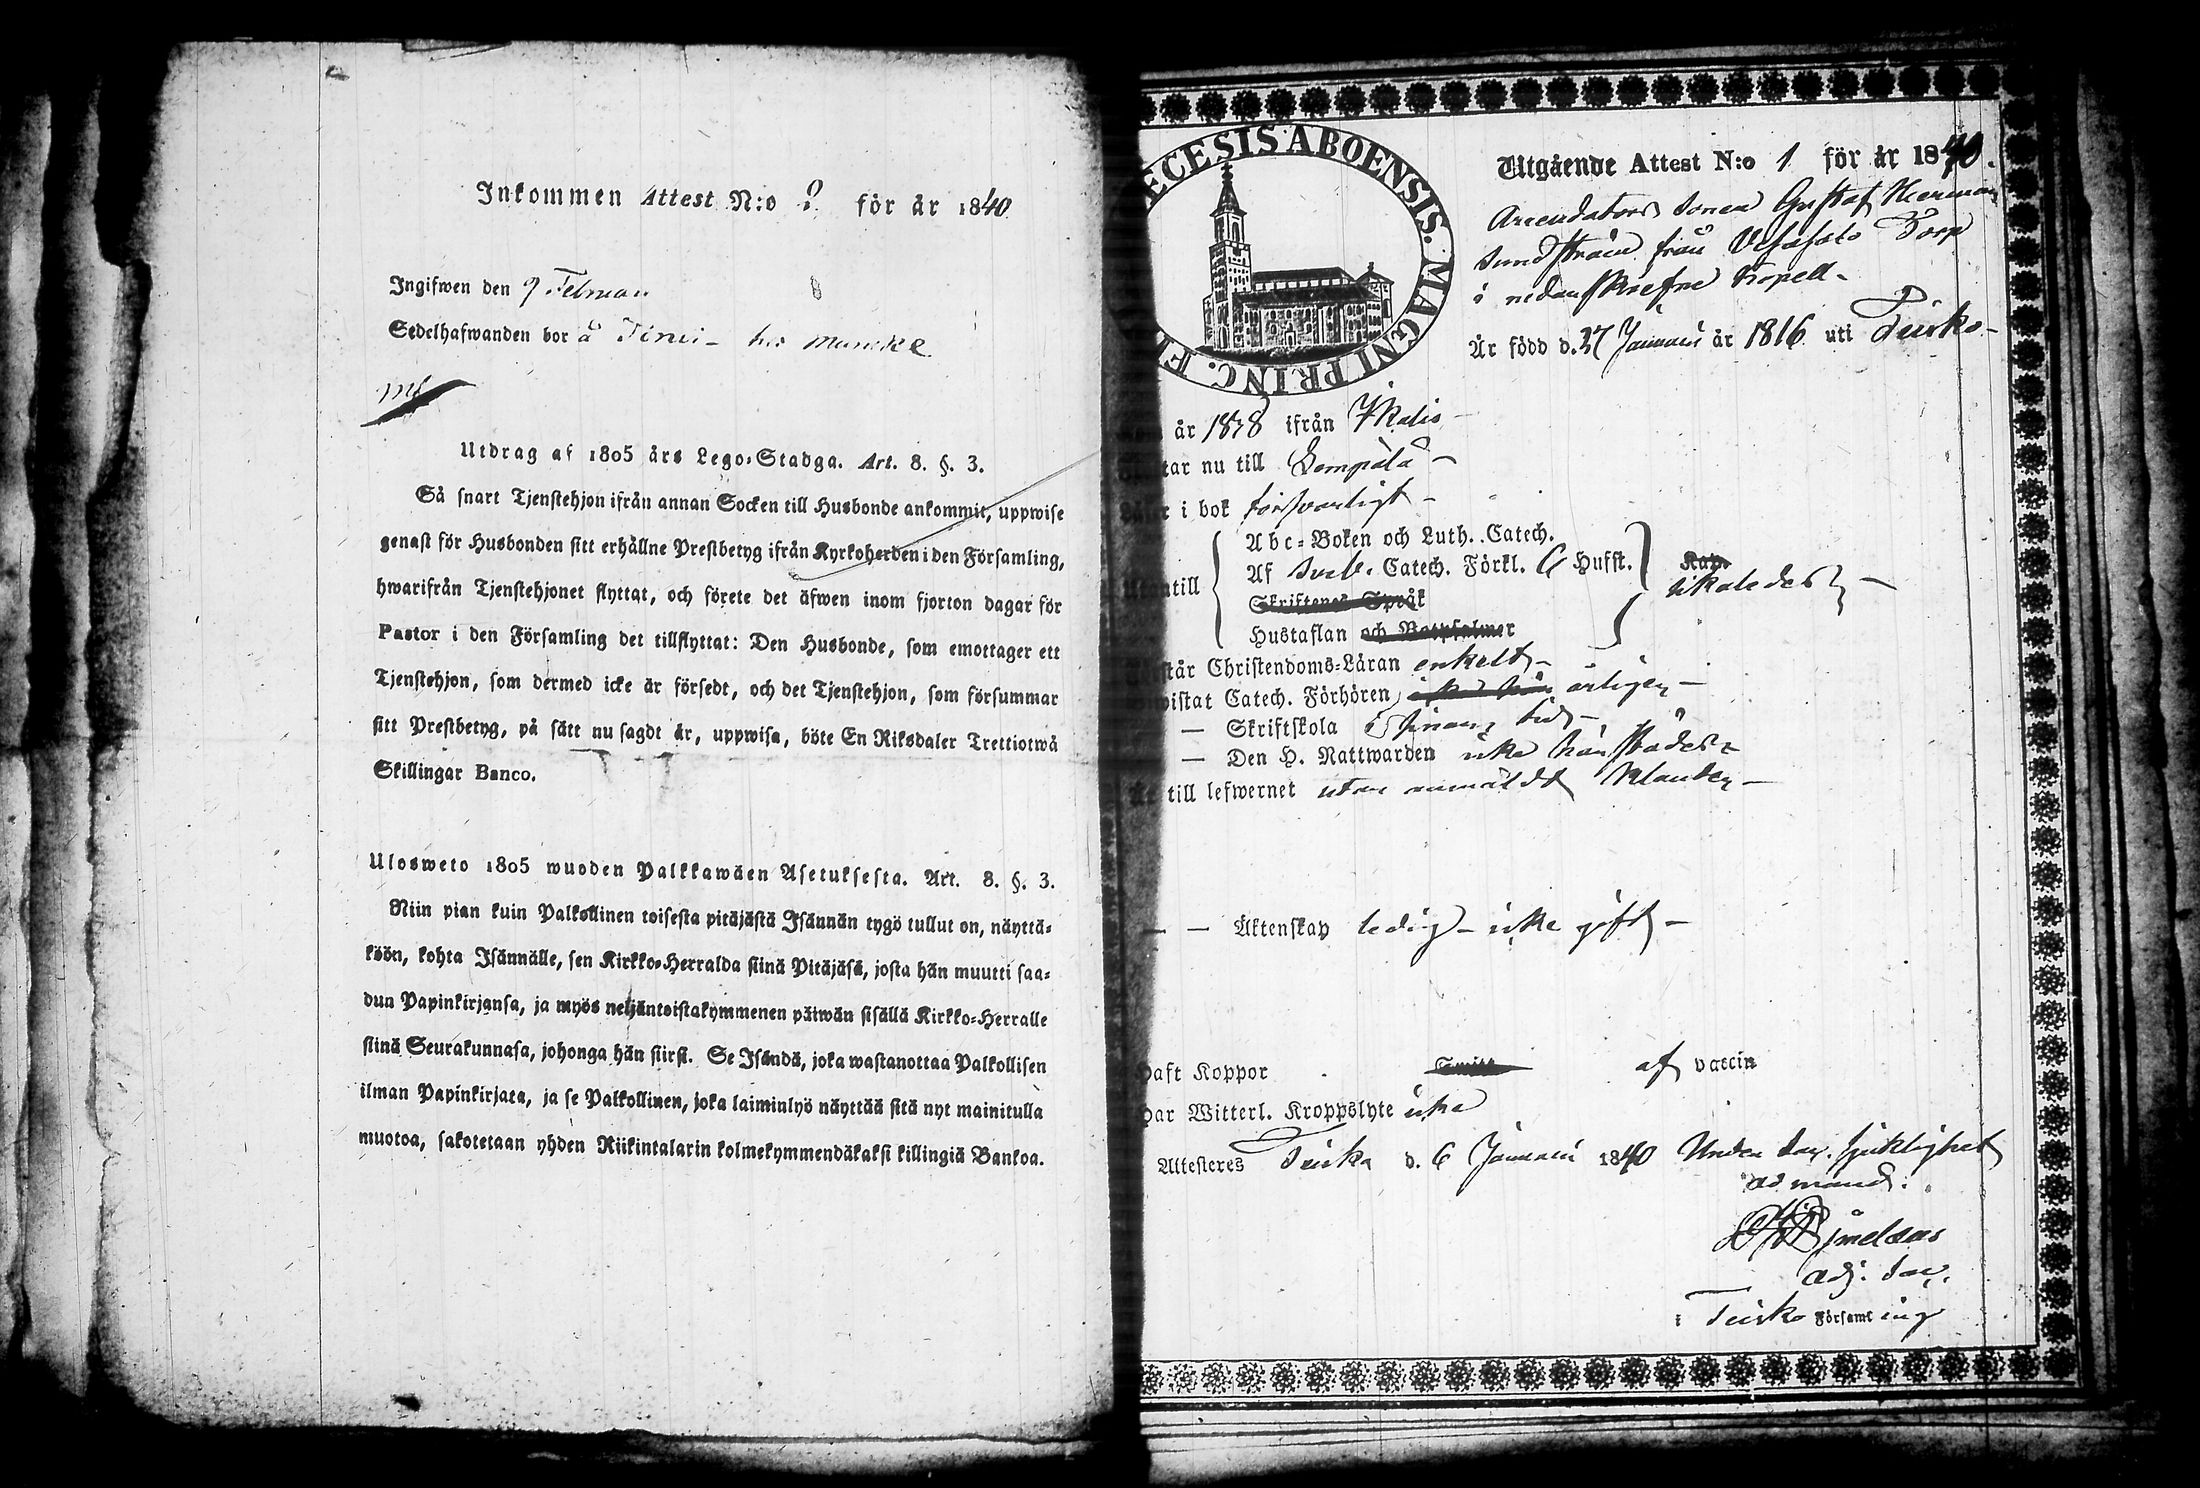 Inkommen Attest N:o 2 för år 1840
Ingifwen den 9 Februari
Sedelhafwanden bor å
Utdrag af 1805 års Lego-Stadga. Art. 8. §. 3.
Så snart Tjenstehjon ifrån annan Socken till Husbonde ankommit, uppwise
genast för Husbonden sitt erhållne Prestbetyg ifrån Kyrkoherden i den Församling,
hwarifrån Tjenstehjonet flyttat, och förete det äfwen inom fjorton dagar för
Pastor i den Församling det tillflyttat: Den Husbonde, som emottager ett
Tjenstehjon, som dermed icke är försedt, och det Tjenstehjon, som försummar
sitt Prestbetyg, på sätt nu sagdt är, uppwisa, böte En Riksdaler Trettiotwå
Skillingar Banco.
Ulosweto 1805 wuoden Palkkawäen Asetuksesta. Art. 8. §. 3.
Niin pian kuin Palkollinen toisesta pitäjästä Isännän tygö tullut on, näyttä-
köön, kohta Isännälle, sen Kirkko-Herralda siinä Pitäjäsä, josta hän muutti saa-
dun Papinkirjansa, ja myös neljäntoistakymmenen päiwän sisällä Kirkko-Herralle
siinä Seurakunnasa, johonga hän siirsi. Se Isändä, joka wastanottaa Palkollisen
ilman Papinkirjata, ja se Palkollinen, joka laiminlyö näyttää sitä nyt mainitulla
muotoa, sakotetaan yhden Riikintalarin kolmekymmendäkaksi killingiä Bankoa.
ECESIS ABOENSIS. MAGNI PRINC. F
Utgående Attest N:o 1 för år 1840.
Arrendators sonen Gustaf Herman
Sundström från Torp
i nedanskrefne Kapell
Är född d. 27 Januari år 1816 uti Teisko
år 1838 ifrån Ikalis
tar nu till Lempälä
i bok försvarligt
Abc-Boken och Luth. Catech.
Af Sveb. Catech. Förkl. 6 Hufst.
till
Skriftenes Språk
Hustaflan och Botpsalmer
står Christendoms-Läran enkelt
istat Catech. Förhören årligen
— Skriftskola i sinom tid
— Den H. Nattwarden
till lefwernet utan anmäldt klander
— — Äktenskap ledig - icke gift
haft Koppor af vaccin
har Witterl. Kroppslyte icke
Attesteres Teisko d. 6 Januari 1840 Under Sac. sjuklighet
ad mand.
adj. Sac.
i Teisko Församling